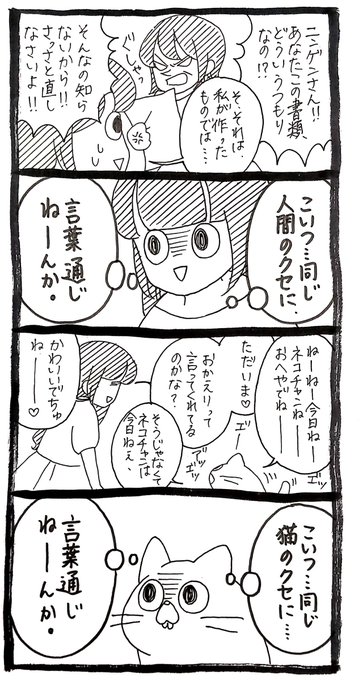 ニンゲンさん!!
あなたこの書類
どういうつもり
なの!?
ぐしゃっ
そ、それは
私が作った
ものでは……
そんなの知ら
ないから!!
さっさと直し
なさいよ!!
こいつ…同じ
人間のクセに、
言葉通じ
ねーんか。
ねーねー今日ねー
ネコチャンねー
おへやでねー
ただいま♡
おかえりって
言ってくれてる
のかな?
エッ
アッ
エッ
エッ
そうじゃなくて
ネコチャンは
今日ねぇ、
かわいいでちゅ
ねー♡
こいつ…同じ
猫のクセに……
言葉通じ
ねーんか。